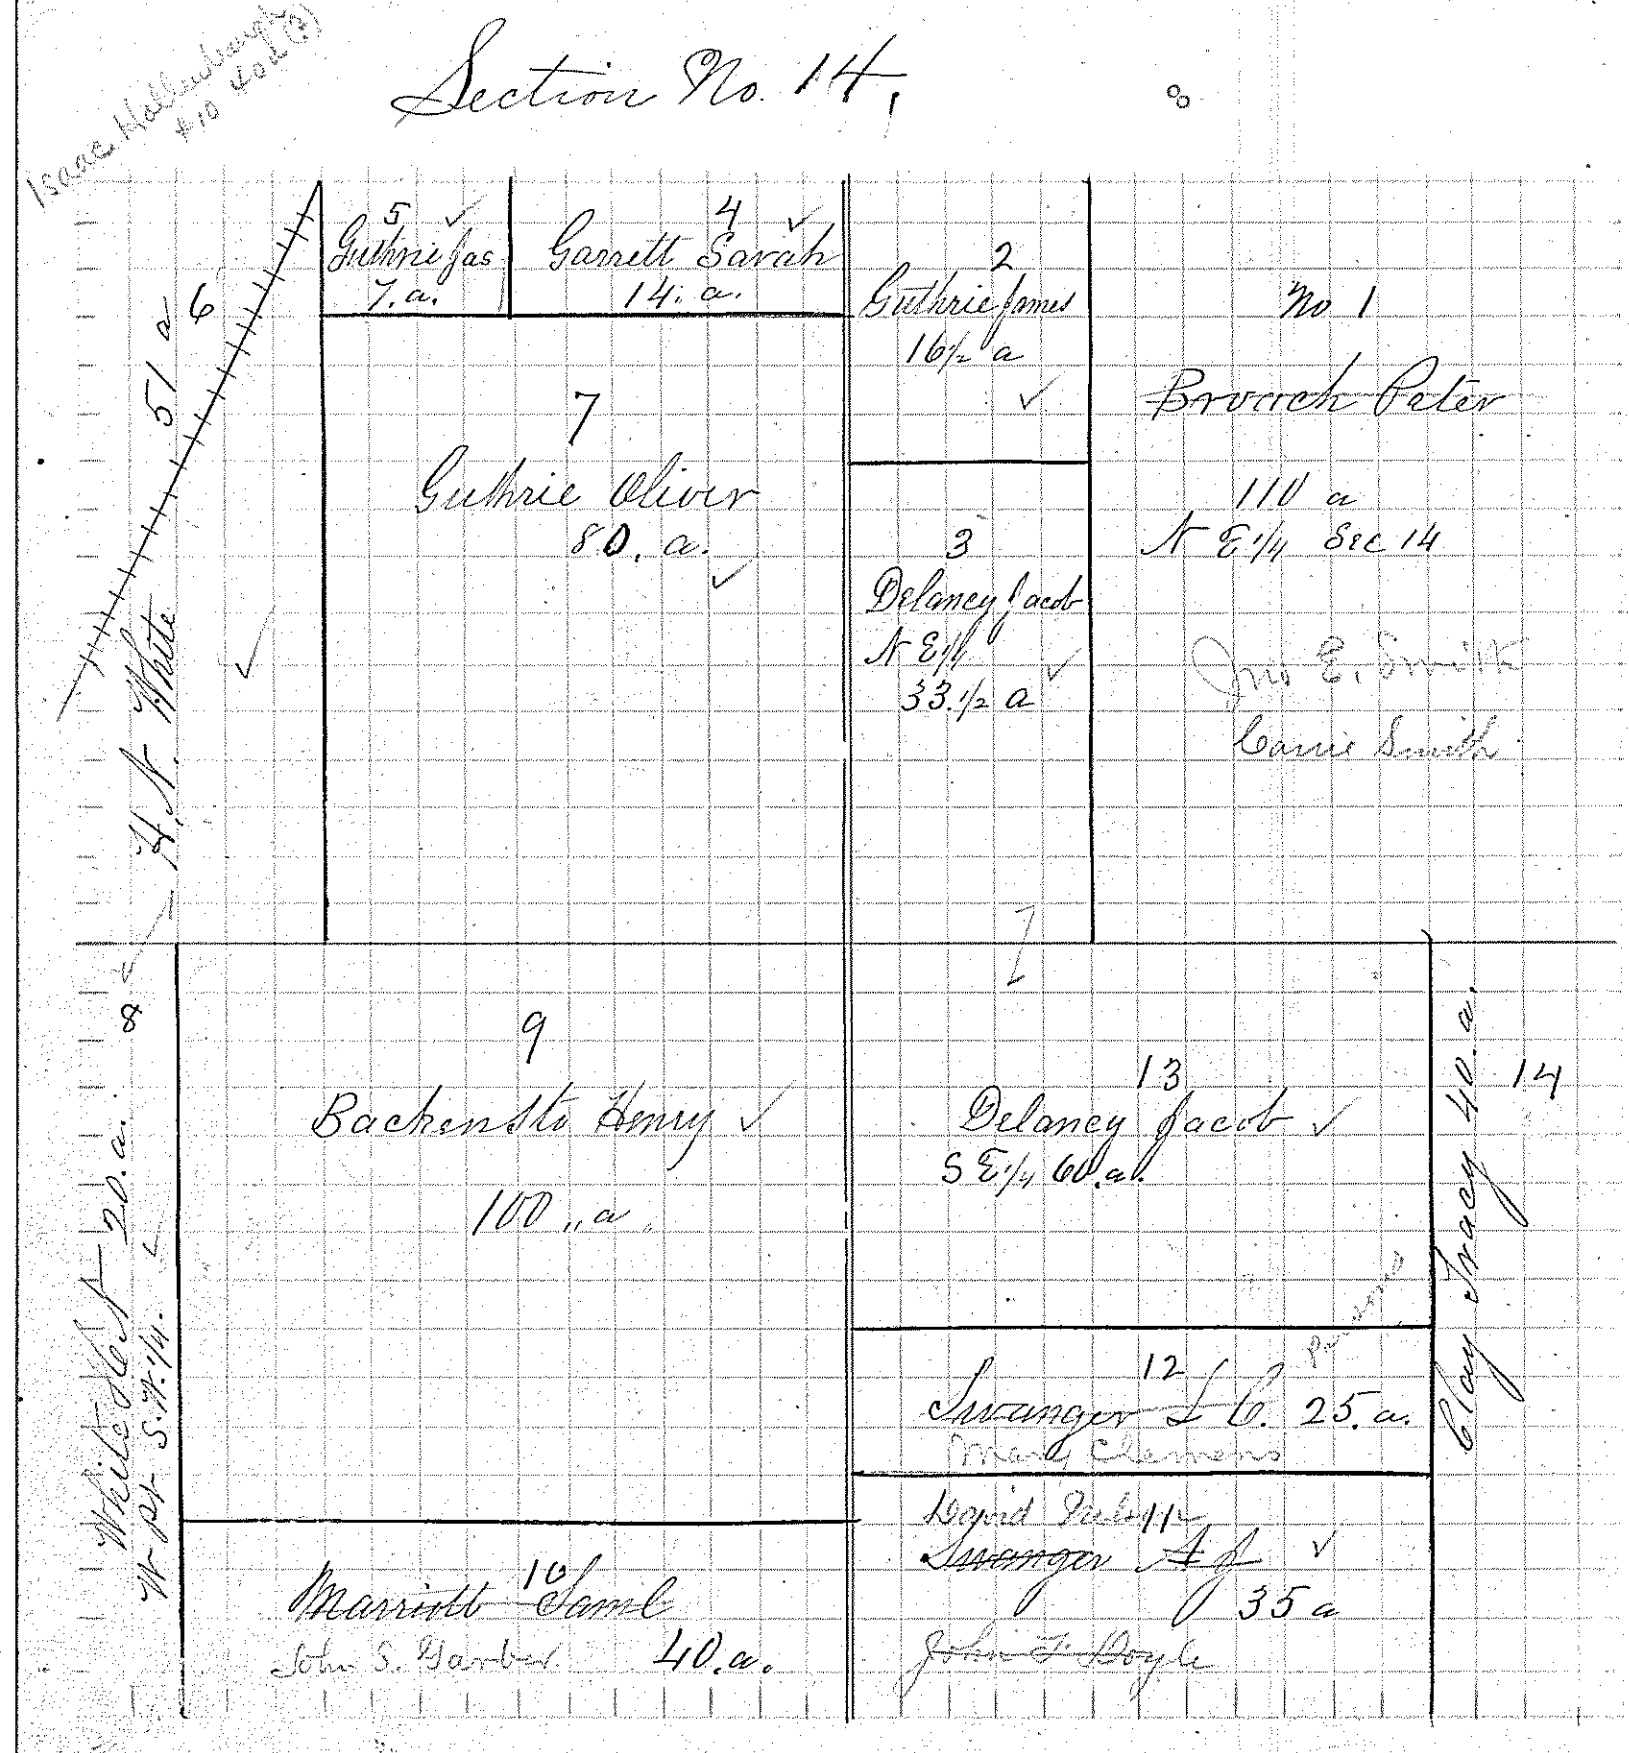 Section No. 14,
Isaac
5
Guthrie Jas
7. a.
4
Garrett Sarah
14. a.
2
Guthrie James
16 1/2 a
No 1
Broach Peter
110 a
N E 1/4 Sec 14
Jno E. Smith
Carrie Smith
6
H. N. White 51 a
7
Guthrie Oliver
80. a.
3
Delaney Jacob
N E 1/4
33. 1/2 a
8
White H N 20. a.
W pt S. W. 1/4.
9
Backensto Henry
100 „ a „
13
Delaney Jacob
S E 1/4 60. a.
14
Clay Tracy 40. a.
12
Swanger L C. 25. a.
Mary Clemens
David
11
Swanger A J
35 a
John F Doyle
10
Marriott Saml
John S. Garber 40. a.